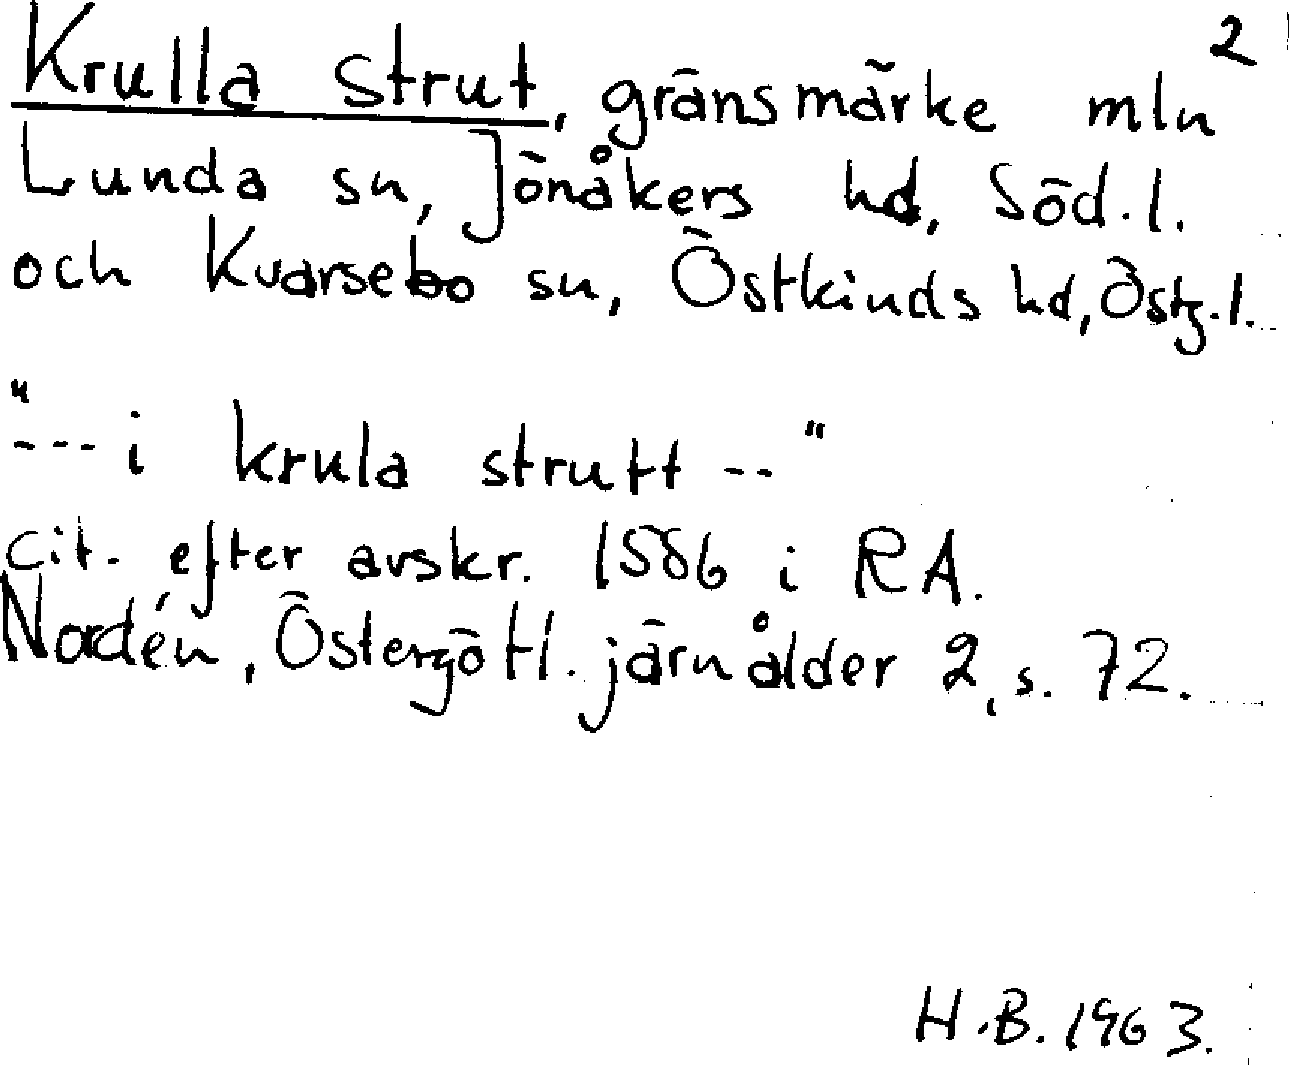 2
Krulla strut, gränsmärke mln
Lunda sn, Jönåkers hd, Söd.l.
och Kvarsebo sn, Östkinds hd, Östg.l.
"--- i krula strutt --"
cit. efter avskr. 1586 i RA.
Nordén, Östergötl. järnålder 2, s. 72.
H.B. 1963.